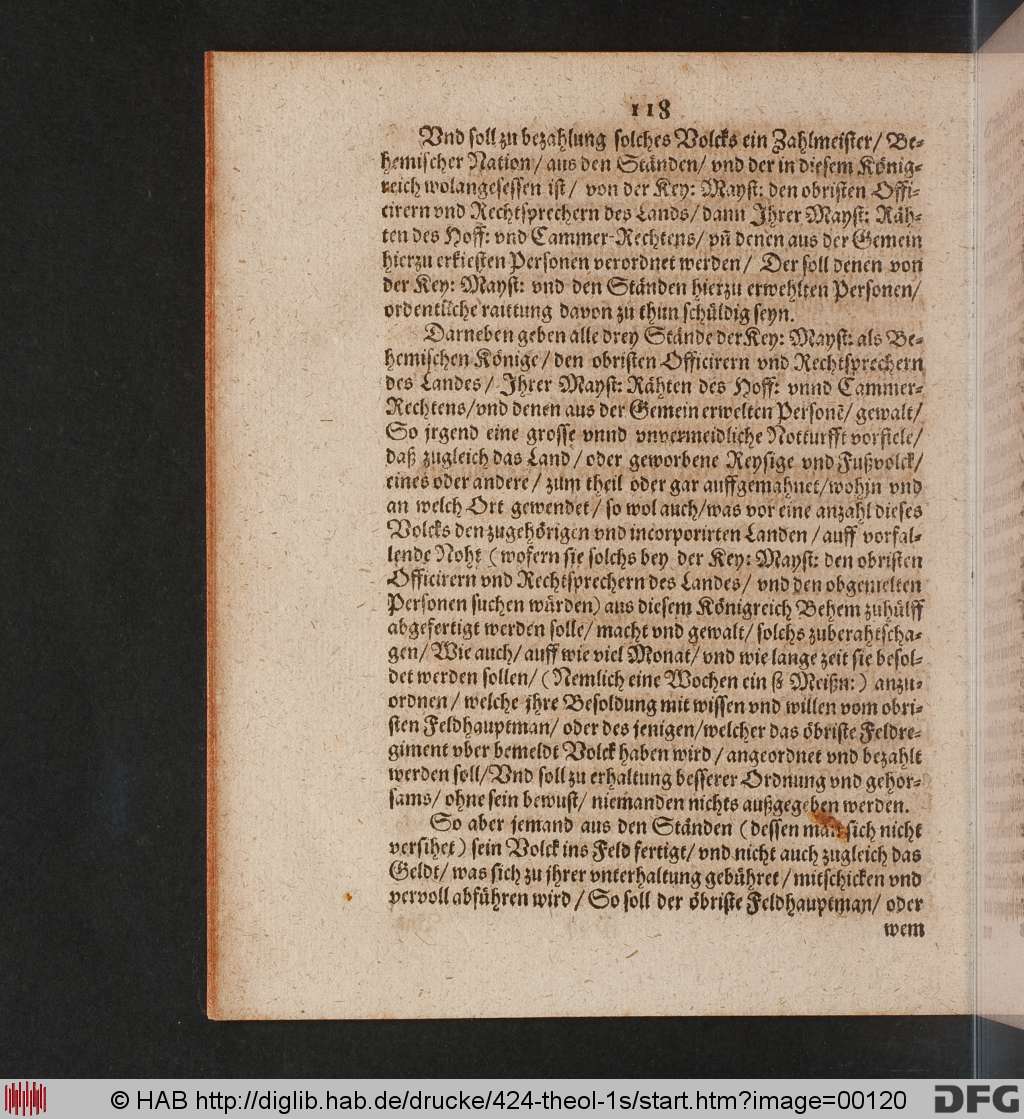 118
Vnd soll zu bezahlung solches Volcks ein Zahlmeister/ Be-
hemischer Nation/ aus den Ständen/ vnd der in diesem König-
reich wolangesessen ist/ von der Key: Mayst: den obristen Offi-
cirern vnd Rechtsprechern des Lands/ dann Ihrer Mayst: Räh-
ten des Hoff: vnd Cammer-Rechtens/ vñ denen aus der Gemein
hierzu erkiesten Personen verordnet werden/ Der soll denen von
der Key: Mayst: vnd den Ständen hierzu erwehlten Personen/
ordentliche raittung davon zu thun schüldig seyn.
Darneben geben alle drey Stände der Key: Mayst: als Be-
hemischen Könige/ den obristen Officirern vnd Rechtsprechern
des Landes/ Ihrer Mayst: Rähten des Hoff: vnnd Cammer-
Rechtens/ vnd denen aus der Gemein erwelten Personē/ gewalt/
So jrgend eine grosse vnnd vnvermeidliche Notturfft vorfiele/
daß zugleich das Land/ oder geworbene Reysige vnd Fußvolck/
eines oder andere/ zum theil oder gar auffgemahnet/ wohin vnd
an welch Ort gewendet/ so wol auch/ was vor eine anzahl dieses
Volcks den zugehörigen vnd incorporirten Landen/ auff vorfal-
lende Noht (wofern sie solchs bey der Key: Mayst: den obristen
Officirern vnd Rechtsprechern des Landes/ vnd den obgemelten
Personen suchen würden) aus diesem Königreich Behem zuhülff
abgefertigt werden solle/ macht vnd gewalt/ solchs zuberahtscha-
gen/ Wie auch/ auff wie viel Monat/ vnd wie lange zeit sie besol-
det werden sollen/ (Nemlich eine Wochen ein ß Meißn:) anzu-
ordnen/ welche jhre Besoldung mit wissen vnd willen vom obri-
sten Feldhauptman/ oder des jenigen/ welcher das öbriste Feldre-
giment vber bemeldt Volck haben wird/ angeordnet vnd bezahlt
werden soll/ Vnd soll zu erhaltung besserer Ordnung vnd gehor-
sams/ ohne sein bewust/ niemanden nichts außgegeben werden.
So aber jemand aus den Ständen (dessen man sich nicht
versihet) sein Volck ins Feld fertigt/ vnd nicht auch zugleich das
Geldt/ was sich zu jhrer vnterhaltung gebühret/ mitschicken vnd
vervoll abführen wird/ So soll der öbriste Feldhauptman/ oder
wem
© HAB http://diglib.hab.de/drucke/424-theol-1s/start.htm?image=00120
DFG